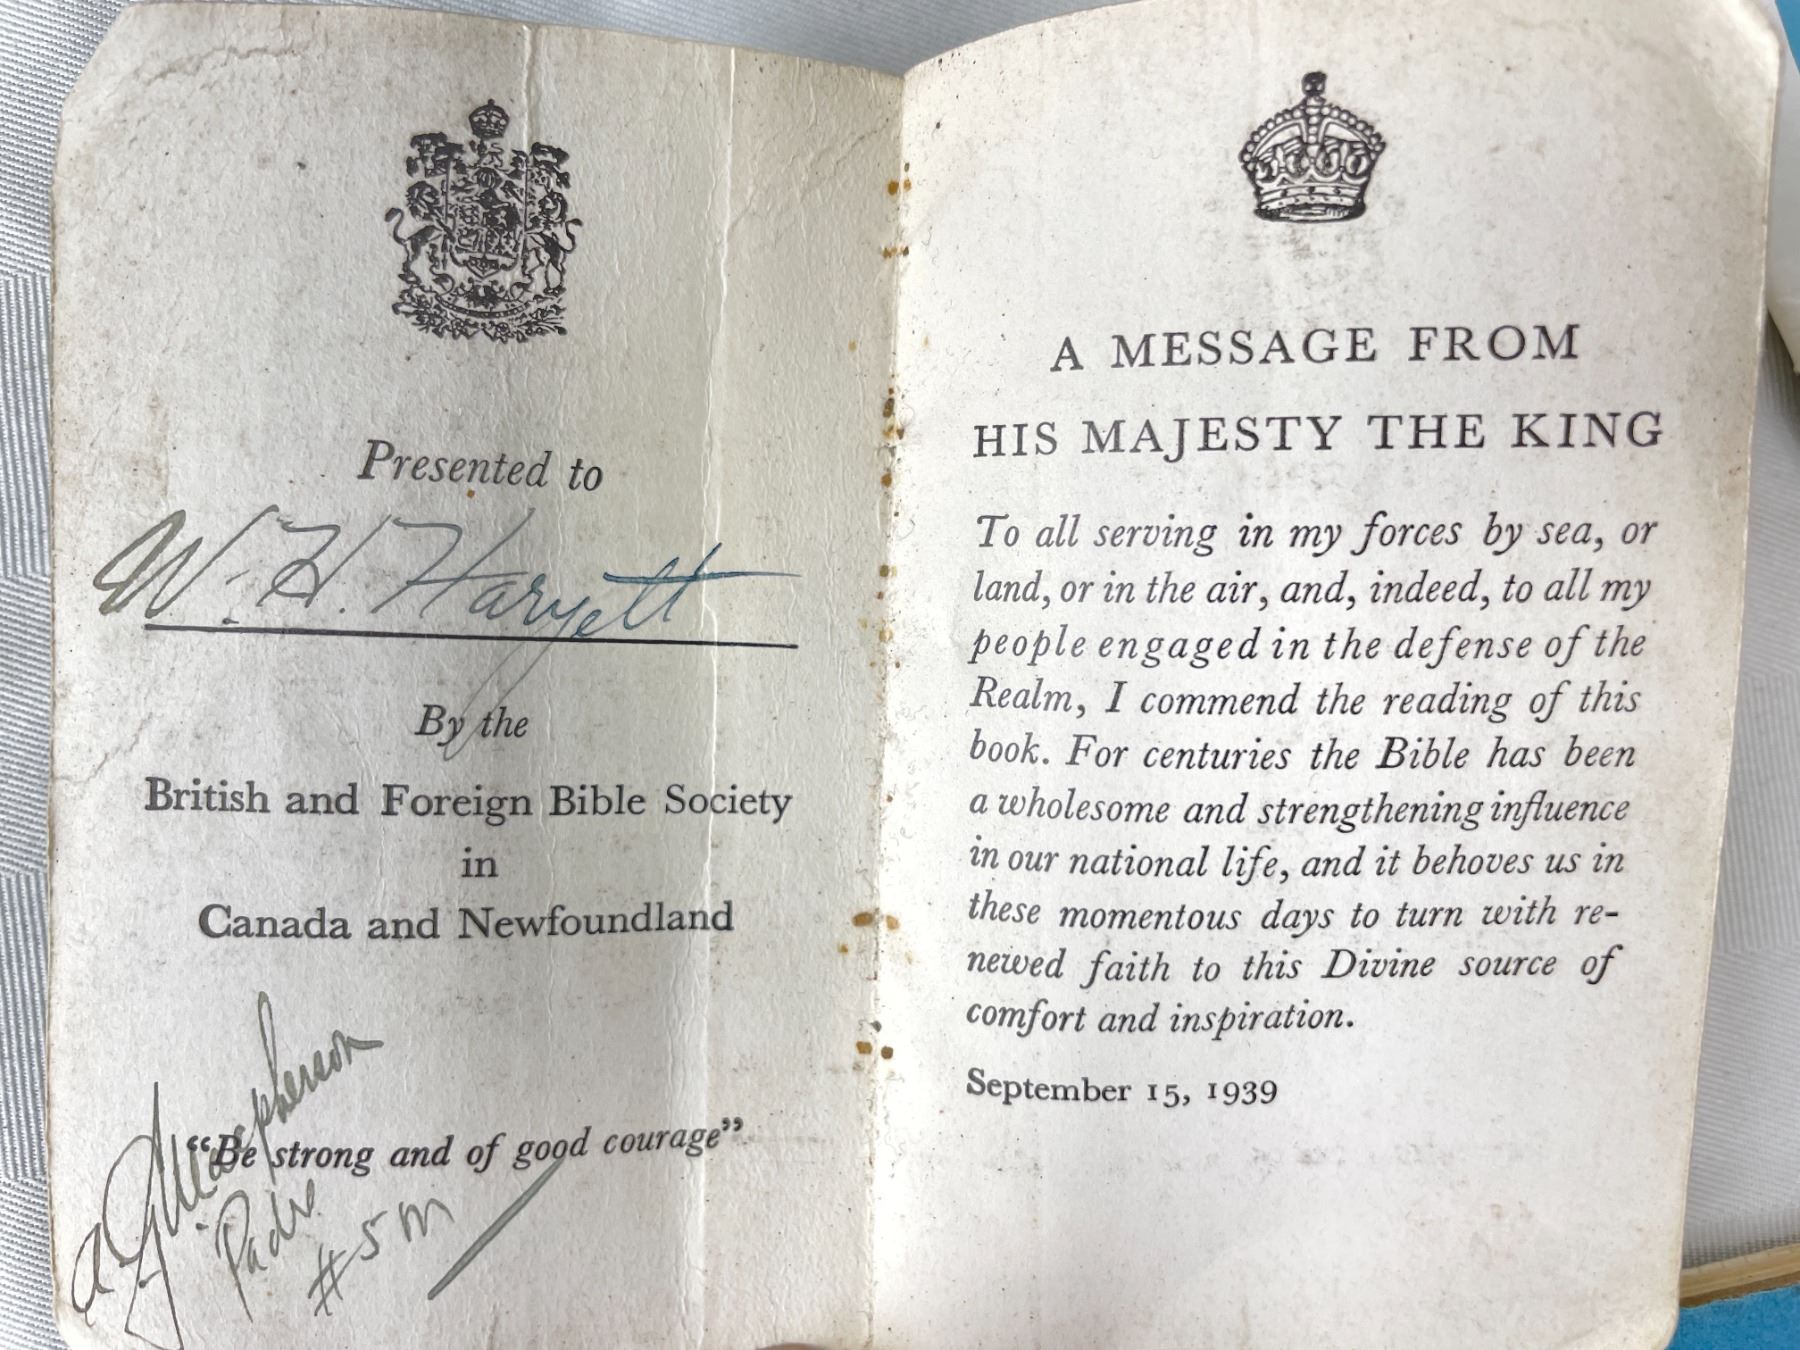 Presented to
W. H. Haryett
By the
British and Foreign Bible Society
in
Canada and Newfoundland
"Be strong and of good courage"
Macpherson
Padre
#5 M
A MESSAGE FROM
HIS MAJESTY THE KING
To all serving in my forces by sea, or
land, or in the air, and, indeed, to all my
people engaged in the defense of the
Realm, I commend the reading of this
book. For centuries the Bible has been
a wholesome and strengthening influence
in our national life, and it behoves us in
these momentous days to turn with re-
newed faith to this Divine source of
comfort and inspiration.
September 15, 1939